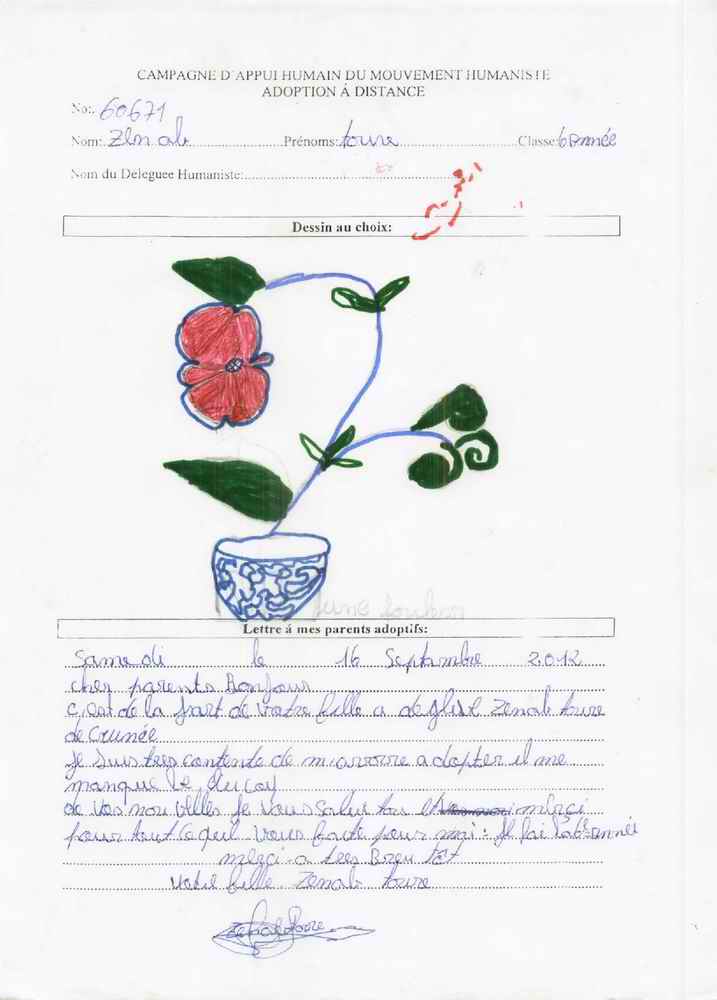 CAMPAGNE D'APPUI HUMAIN DU MOUVEMENT HUMANISTE
ADOPTION Á DISTANCE
No:. 60671
Nom: Zenab Prénoms: toure Classe: 6eAnnée
Nom du Deleguee Humaniste:
Dessin au choix:
Lettre á mes parents adoptifs:
Samedi le 16 Septambre 2012
cher parents Bonjour
c,est de la part de votre fille a de glise Zenab toure
de Guinée
Je suis tres contente de m'avoire adopter il me
manque le
de vos nou velles Je vous salut tou et merci
pour tout ce quil vous faite pour moi : Je fai la 6e année
merci a tres Bien tot
Votre fille Zenab toure